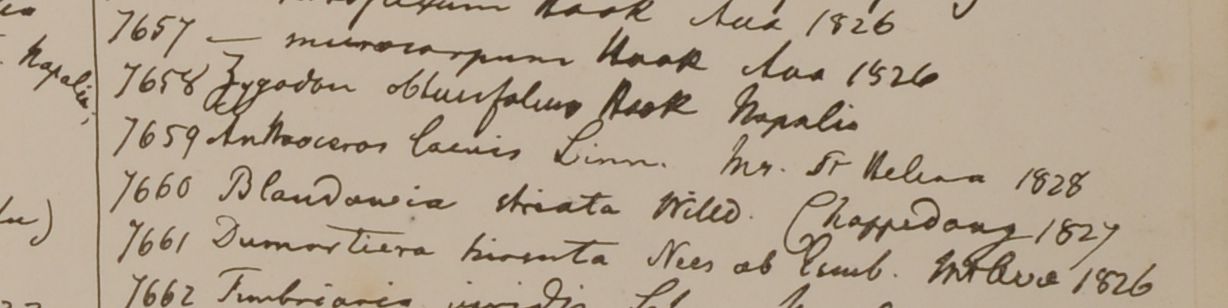 Napalia
Hook Ava 1826
7657 — microcarpum Hook Ava 1826
7658 Zygodon obtusifolium Hook Napalia
7659 Anthoceros laevis Linn. Mr. St Helena 1828
7660 Blandowia striata Willd. Chappedong 1827
7661 Dumortiera hirsuta Nees ab Esenb. Mt Ava 1826
7662 Fimbriaria